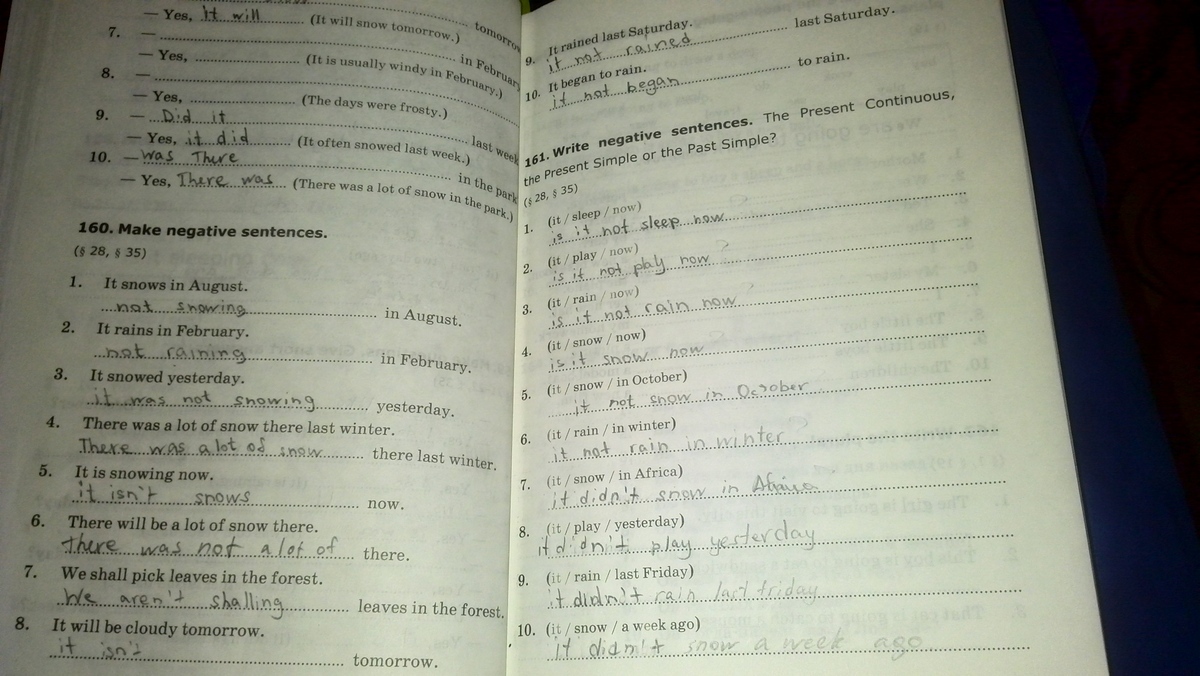 tomorrow
— Yes, It will (It will snow tomorrow.)
7. — in February
— Yes, (It is usually windy in February.)
8. —
— Yes, (The days were frosty.)
9. — Did it last week
— Yes, it did (It often snowed last week.)
10. — Was There in the park
— Yes, There was (There was a lot of snow in the park.)
160. Make negative sentences.
(§ 28, § 35)
1. It snows in August.
not snowing in August.
2. It rains in February.
not raining in February.
3. It snowed yesterday.
it was not snowing yesterday.
4. There was a lot of snow there last winter.
There was a lot of snow there last winter.
5. It is snowing now.
it isn't snows now.
6. There will be a lot of snow there.
There was not a lot of there.
7. We shall pick leaves in the forest.
We aren't shalling leaves in the forest.
8. It will be cloudy tomorrow.
it isn't tomorrow.
9. It rained last Saturday.
it not rained last Saturday.
10. It began to rain.
it not began to rain.
161. Write negative sentences. The Present Continuous,
the Present Simple or the Past Simple?
(§ 28, § 35)
1. (it / sleep / now)
is it not sleep now
2. (it / play / now)
is it not play now ?
3. (it / rain / now)
is it not rain now ?
4. (it / snow / now)
is it snow now
5. (it / snow / in October)
it not snow in October
6. (it / rain / in winter)
it not rain in winter ?
7. (it / snow / in Africa)
it didn't snow in Africa
8. (it / play / yesterday)
it didn't play yesterday
9. (it / rain / last Friday)
it didn't rain last friday
10. (it / snow / a week ago)
it didn't snow a week ago